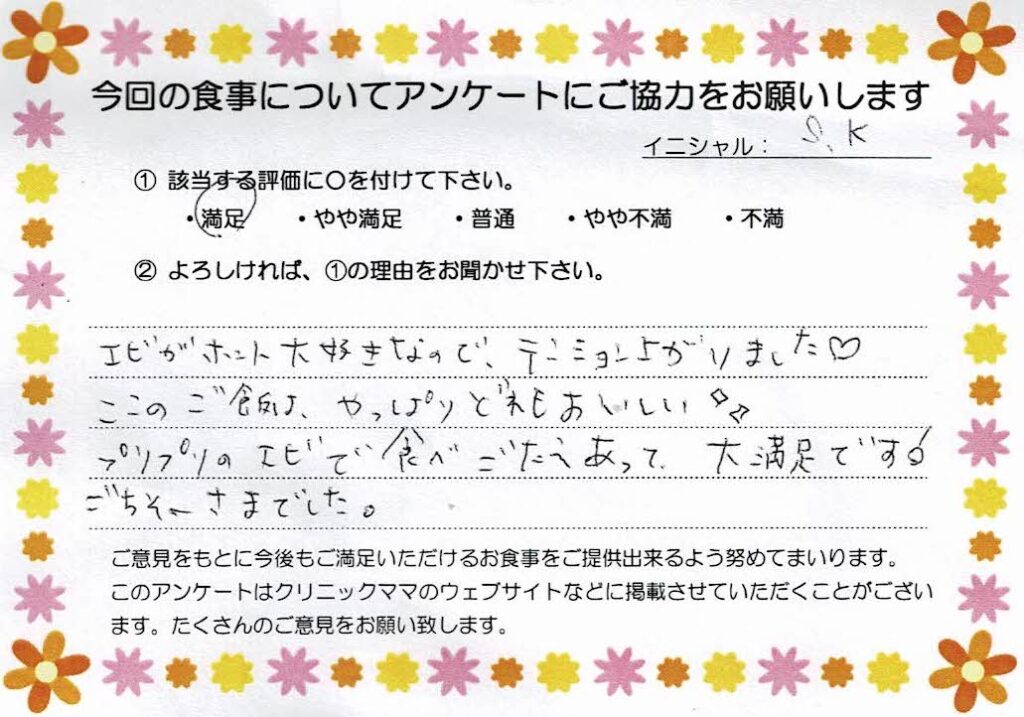 今回の食事についてアンケートにご協力をお願いします
イニシャル： S.K
① 該当する評価に〇を付けて下さい。
・満足 ・やや満足 ・普通 ・やや不満 ・不満
② よろしければ、①の理由をお聞かせ下さい。
エビがホント大好きなので、テンション上がりました♡
ここのご飯は、やっぱりどれもおいしい
プリプリのエビで食べごたえあって、大満足です!
ごちそーさまでした。
ご意見をもとに今後もご満足いただけるお食事をご提供出来るよう努めてまいります。
このアンケートはクリニックママのウェブサイトなどに掲載させていただくことがござい
ます。たくさんのご意見をお願い致します。